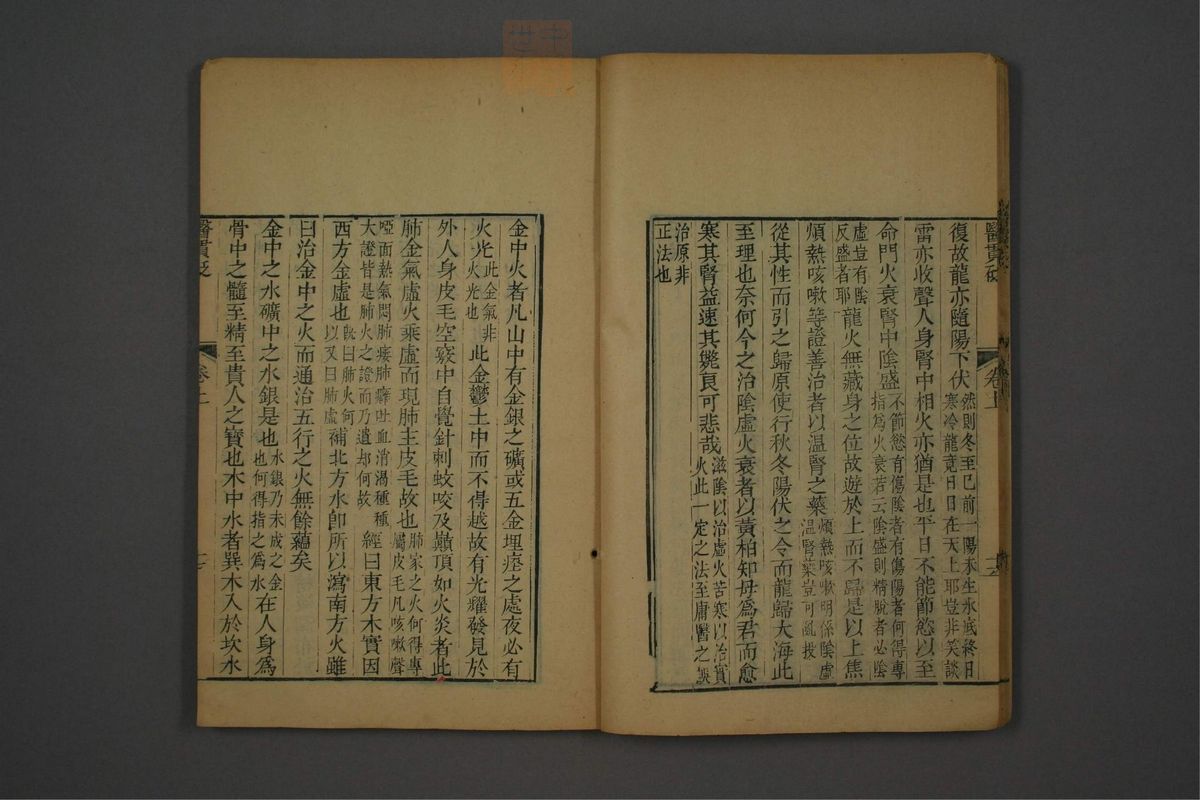 醫貫砭
卷上
復故龍亦隨陽下伏然則冬至已前一陽未生水底終日寒冷龍竟日日在天上耶豈非笑談
雷亦收聲人身腎中相火亦猶是也平日不能節慾以至
命門火衰腎中陰盛不節慾有傷陰者有傷陽者何得專指為火衰若云陰盛則精脫者必陰
虛豈有陰反盛者耶龍火無藏身之位故遊於上而不歸是以上焦
煩熱咳嗽等證善治者以溫腎之藥煩熱咳嗽明係陰虛溫腎藥豈可亂投
從其性而引之歸原使行秋冬陽伏之令而龍歸大海此
至理也奈何今之治陰虛火衰者以黃柏知母為君而愈
寒其腎益速其斃良可悲哉滋陰以治虛火苦寒以治實火此一定之法至庸醫之誤
治原非正法也
金中火者凡山中有金銀之礦或五金埋瘞之處夜必有
火光此金氣非火光也此金鬱土中而不得越故有光耀發見於
外人身皮毛空竅中自覺針刺蚊咬及巔頂如火炎者此
肺金氣虛火乘虛而現肺主皮毛故也肺家之火何得專屬皮毛凡咳嗽聲
啞面熱氣悶肺痿肺癰吐血消渴種種大證皆是肺火之證而乃遺却何故經曰東方木實因
西方金虛也既曰肺火何以又曰肺虛補北方水即所以瀉南方火雖
曰治金中之火而通治五行之火無餘蘊矣
金中之水礦中之水銀是也水銀乃未成之金也何得指之為水在人身為
骨中之髓至精至貴人之寶也木中水者巽木入於坎水
醫貫砭
卷上